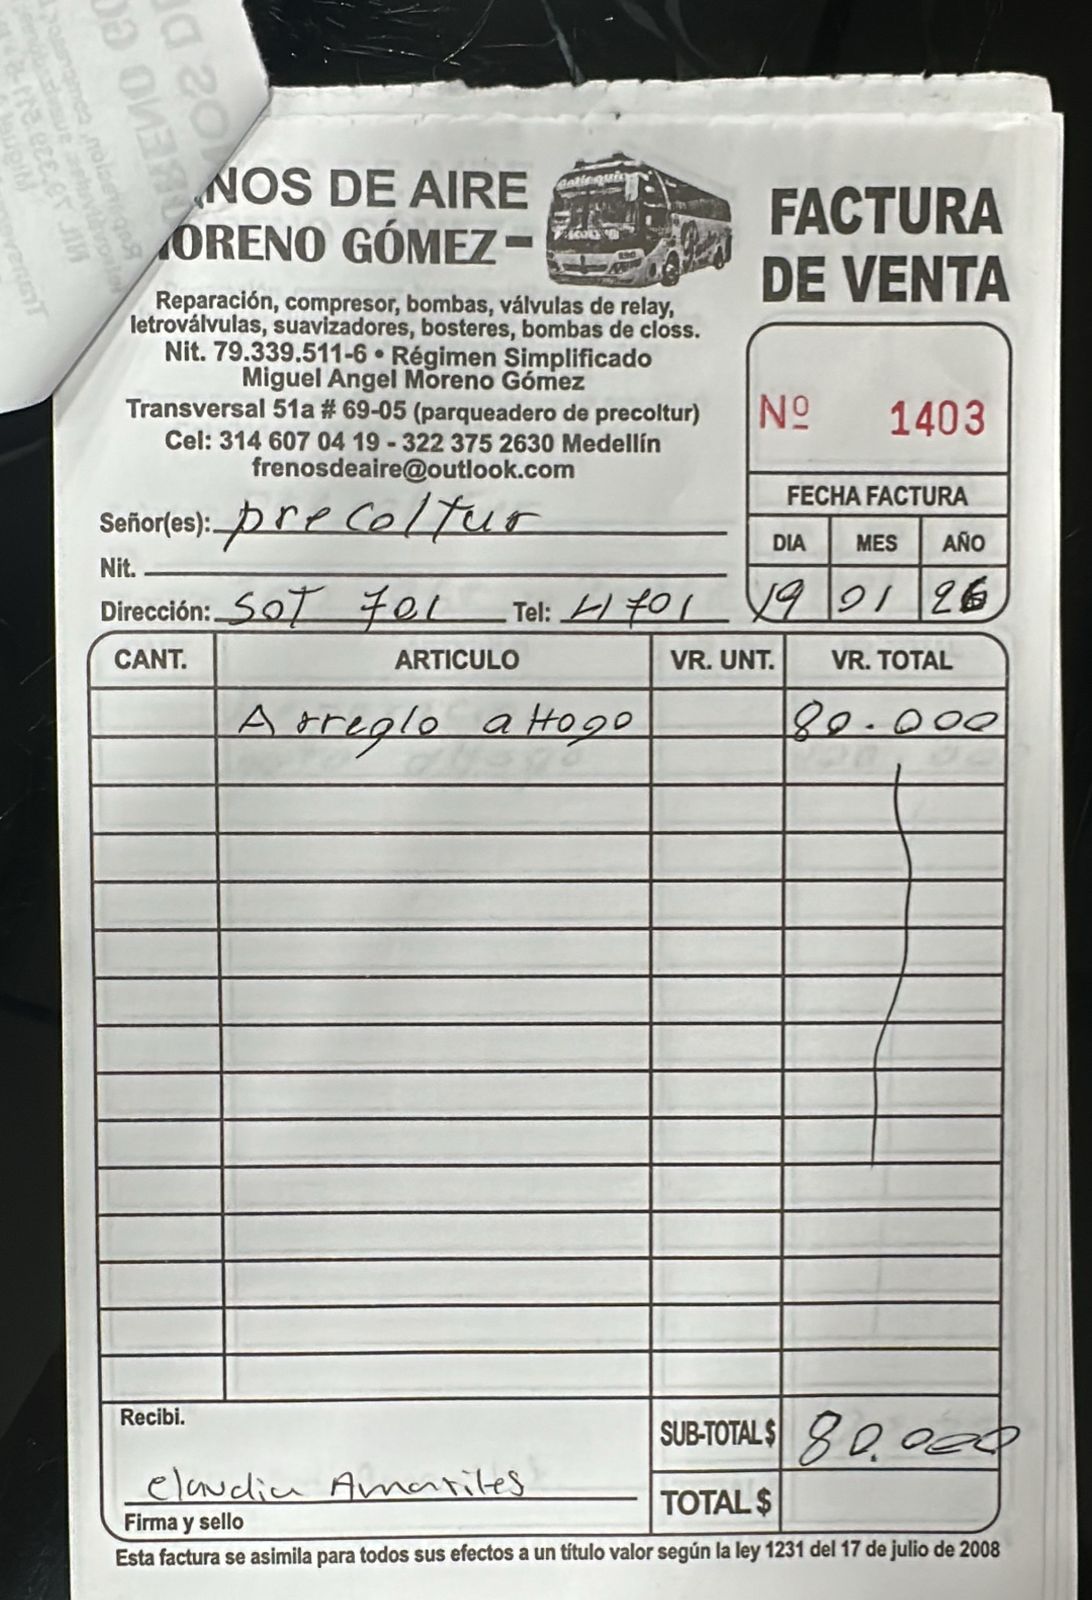 NOS DE AIRE
ORENO GÓMEZ -
FACTURA
DE VENTA
Reparación, compresor, bombas, válvulas de relay,
letroválvulas, suavizadores, bosteres, bombas de closs.
Nit. 79.339.511-6 • Régimen Simplificado
Miguel Angel Moreno Gómez
Transversal 51a # 69-05 (parqueadero de precoltur)
Cel: 314 607 04 19 - 322 375 2630 Medellín
frenosdeaire@outlook.com
Nº 1403
FECHA FACTURA
DIA MES AÑO
19 01 26
Señor(es): precoltur
Nit.
Dirección: SOT 701 Tel: 4701
CANT. ARTICULO VR. UNT. VR. TOTAL
Arreglo aHogo 80.000
Recibi.
SUB-TOTAL $ 80.000
Claudia Amariles
TOTAL $
Firma y sello
Esta factura se asimila para todos sus efectos a un título valor según la ley 1231 del 17 de julio de 2008